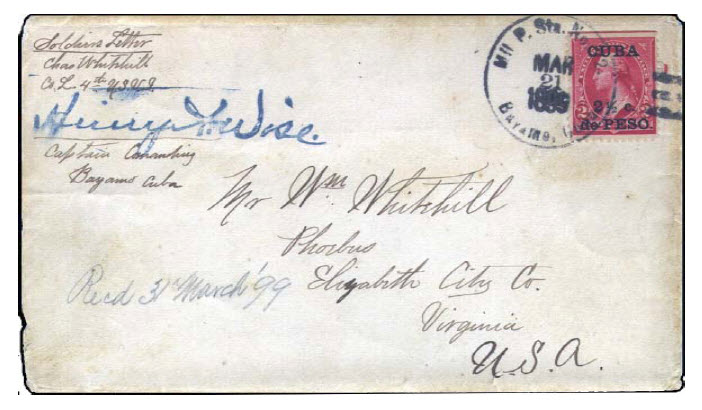 Soldiers Letter
Chas Whitehill
Co. L. 4th U.S.V.I.
Henry L. Wise.
Captain Commanding
Bayamo Cuba
Mil P. Sta. No.
MAR
21
1899
Bayamo,
CUBA
2½ c.
de PESO.
Mr Wm Whitehill
Phoebus
Elizabeth City Co.
Virginia
U.S.A.
Recd 31 March '99